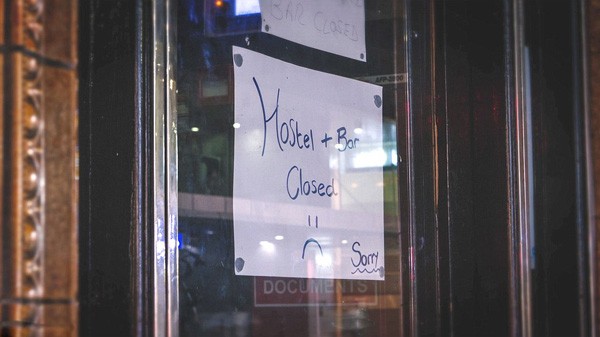 BAR CLOSED
Hostel + Bar
Closed
Sorry
DOCUMENTS